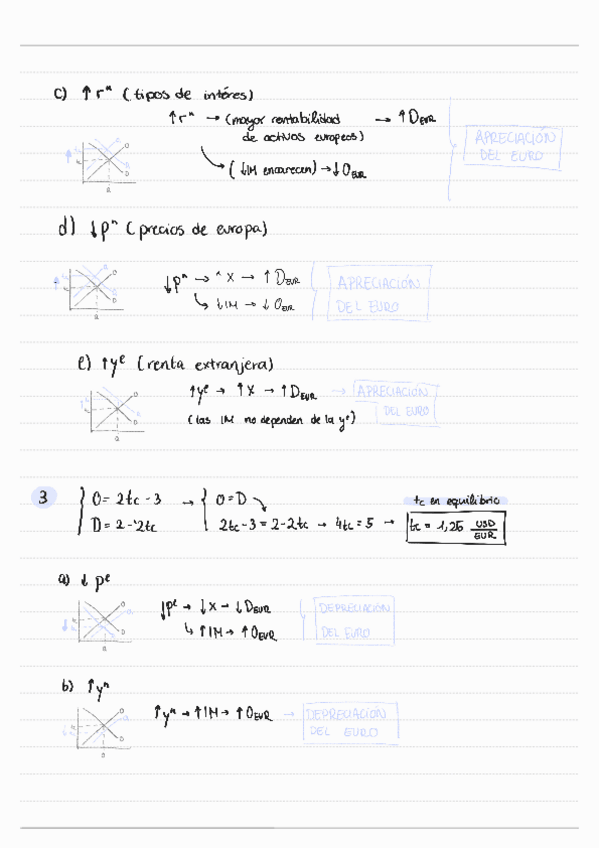 c) ↑rⁿ (tipos de intéres)
↑rⁿ → (mayor rentabilidad de activos europeos) → ↑D_EUR
→ (↓IM encarecen) → ↓O_EUR
APRECIACIÓN
DEL EURO
d) ↓pⁿ (precios de europa)
↓pⁿ → ↑X → ↑D_EUR
↳ ↓IM → ↓O_EUR
APRECIACIÓN
DEL EURO
e) ↑yᵉ (renta extranjera)
↑yᵉ → ↑X → ↑D_EUR → APRECIACIÓN
DEL EURO
(las IM no dependen de la yᵉ)
3
O = 2tc - 3 → O = D
D = 2 - 2tc
2tc - 3 = 2 - 2tc → 4tc = 5 →
tc en equilibrio
tc = 1,25 USD/EUR
a) ↓pᵉ
↓pᵉ → ↓X → ↓D_EUR
↳ ↑IM → ↑O_EUR
DEPRECIACIÓN
DEL EURO
b) ↑yⁿ
↑yⁿ → ↑IM → ↑O_EUR → DEPRECIACIÓN
DEL EURO